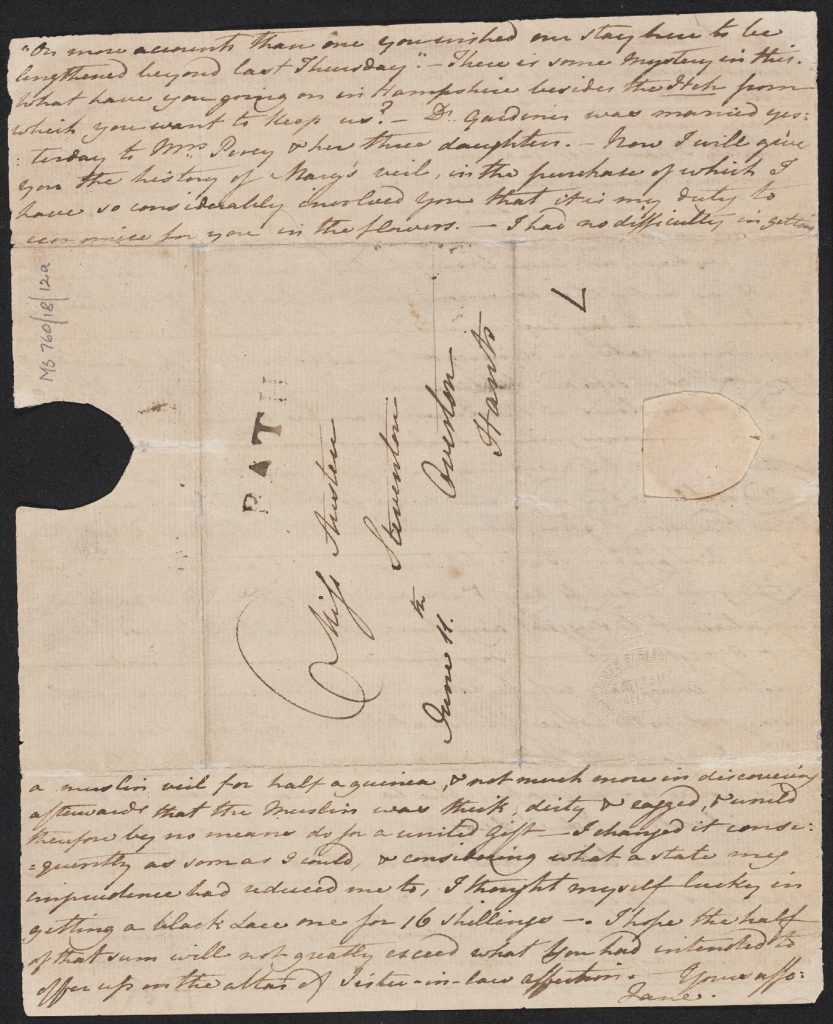 "On more accounts than one you wished our stay here to be
lengthened beyond last Thursday." - There is some Mystery in this.
What have you going on in Hampshire besides the Itch from
which you want to keep us? - Dr. Gardiner was married yes-
:terday to Mrs. Percy & her three daughters. - Now I will give
you the history of Mary's veil, in the purchase of which I
have so considerably involved you that it is my duty to
economise for you in the flowers. - I had no difficulty in getting
MS 760/18/12a
BATH
Miss Austen
Steventon
Overton
Hants
June 11.th
7
a muslin veil for half a guinea, & not much more in discovering
afterwards that the Muslin was thick, dirty & ragged, & would
therefore by no means do for a united Gift - I changed it conse-
:quently as soon as I could, & considering what a state my
imprudence had reduced me to, I thought myself lucky in
getting a black Lace one for 16 shillings -. I hope the half
of that sum will not greatly exceed what You had intended to
offer up on the altar of Sister-in-law affection. - Yours affec:
Jane.